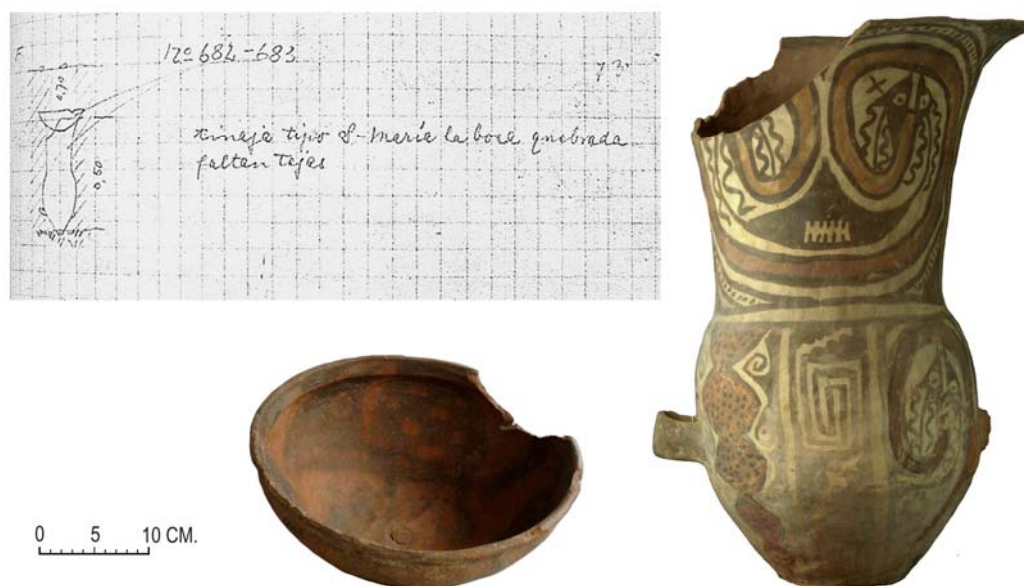 F.
Nº 682-683
0,70
tinaja tipo S-María la boca quebrada
faltan tejas
0,60
0 5 10 CM.